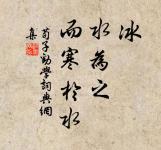 冰
水為之
而寒於水
荀子勸學詞典網
集